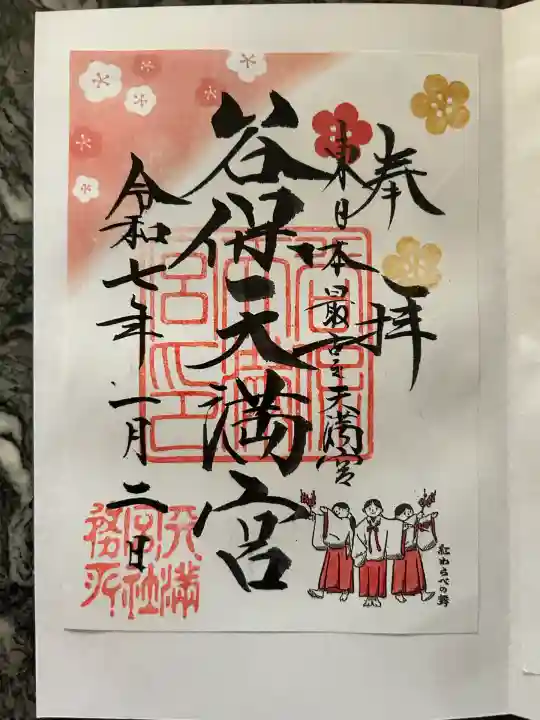 奉拝
東日本最古之天満宮
谷保天満宮
令和七年一月二日
天満宮社務所
紅わらべの舞